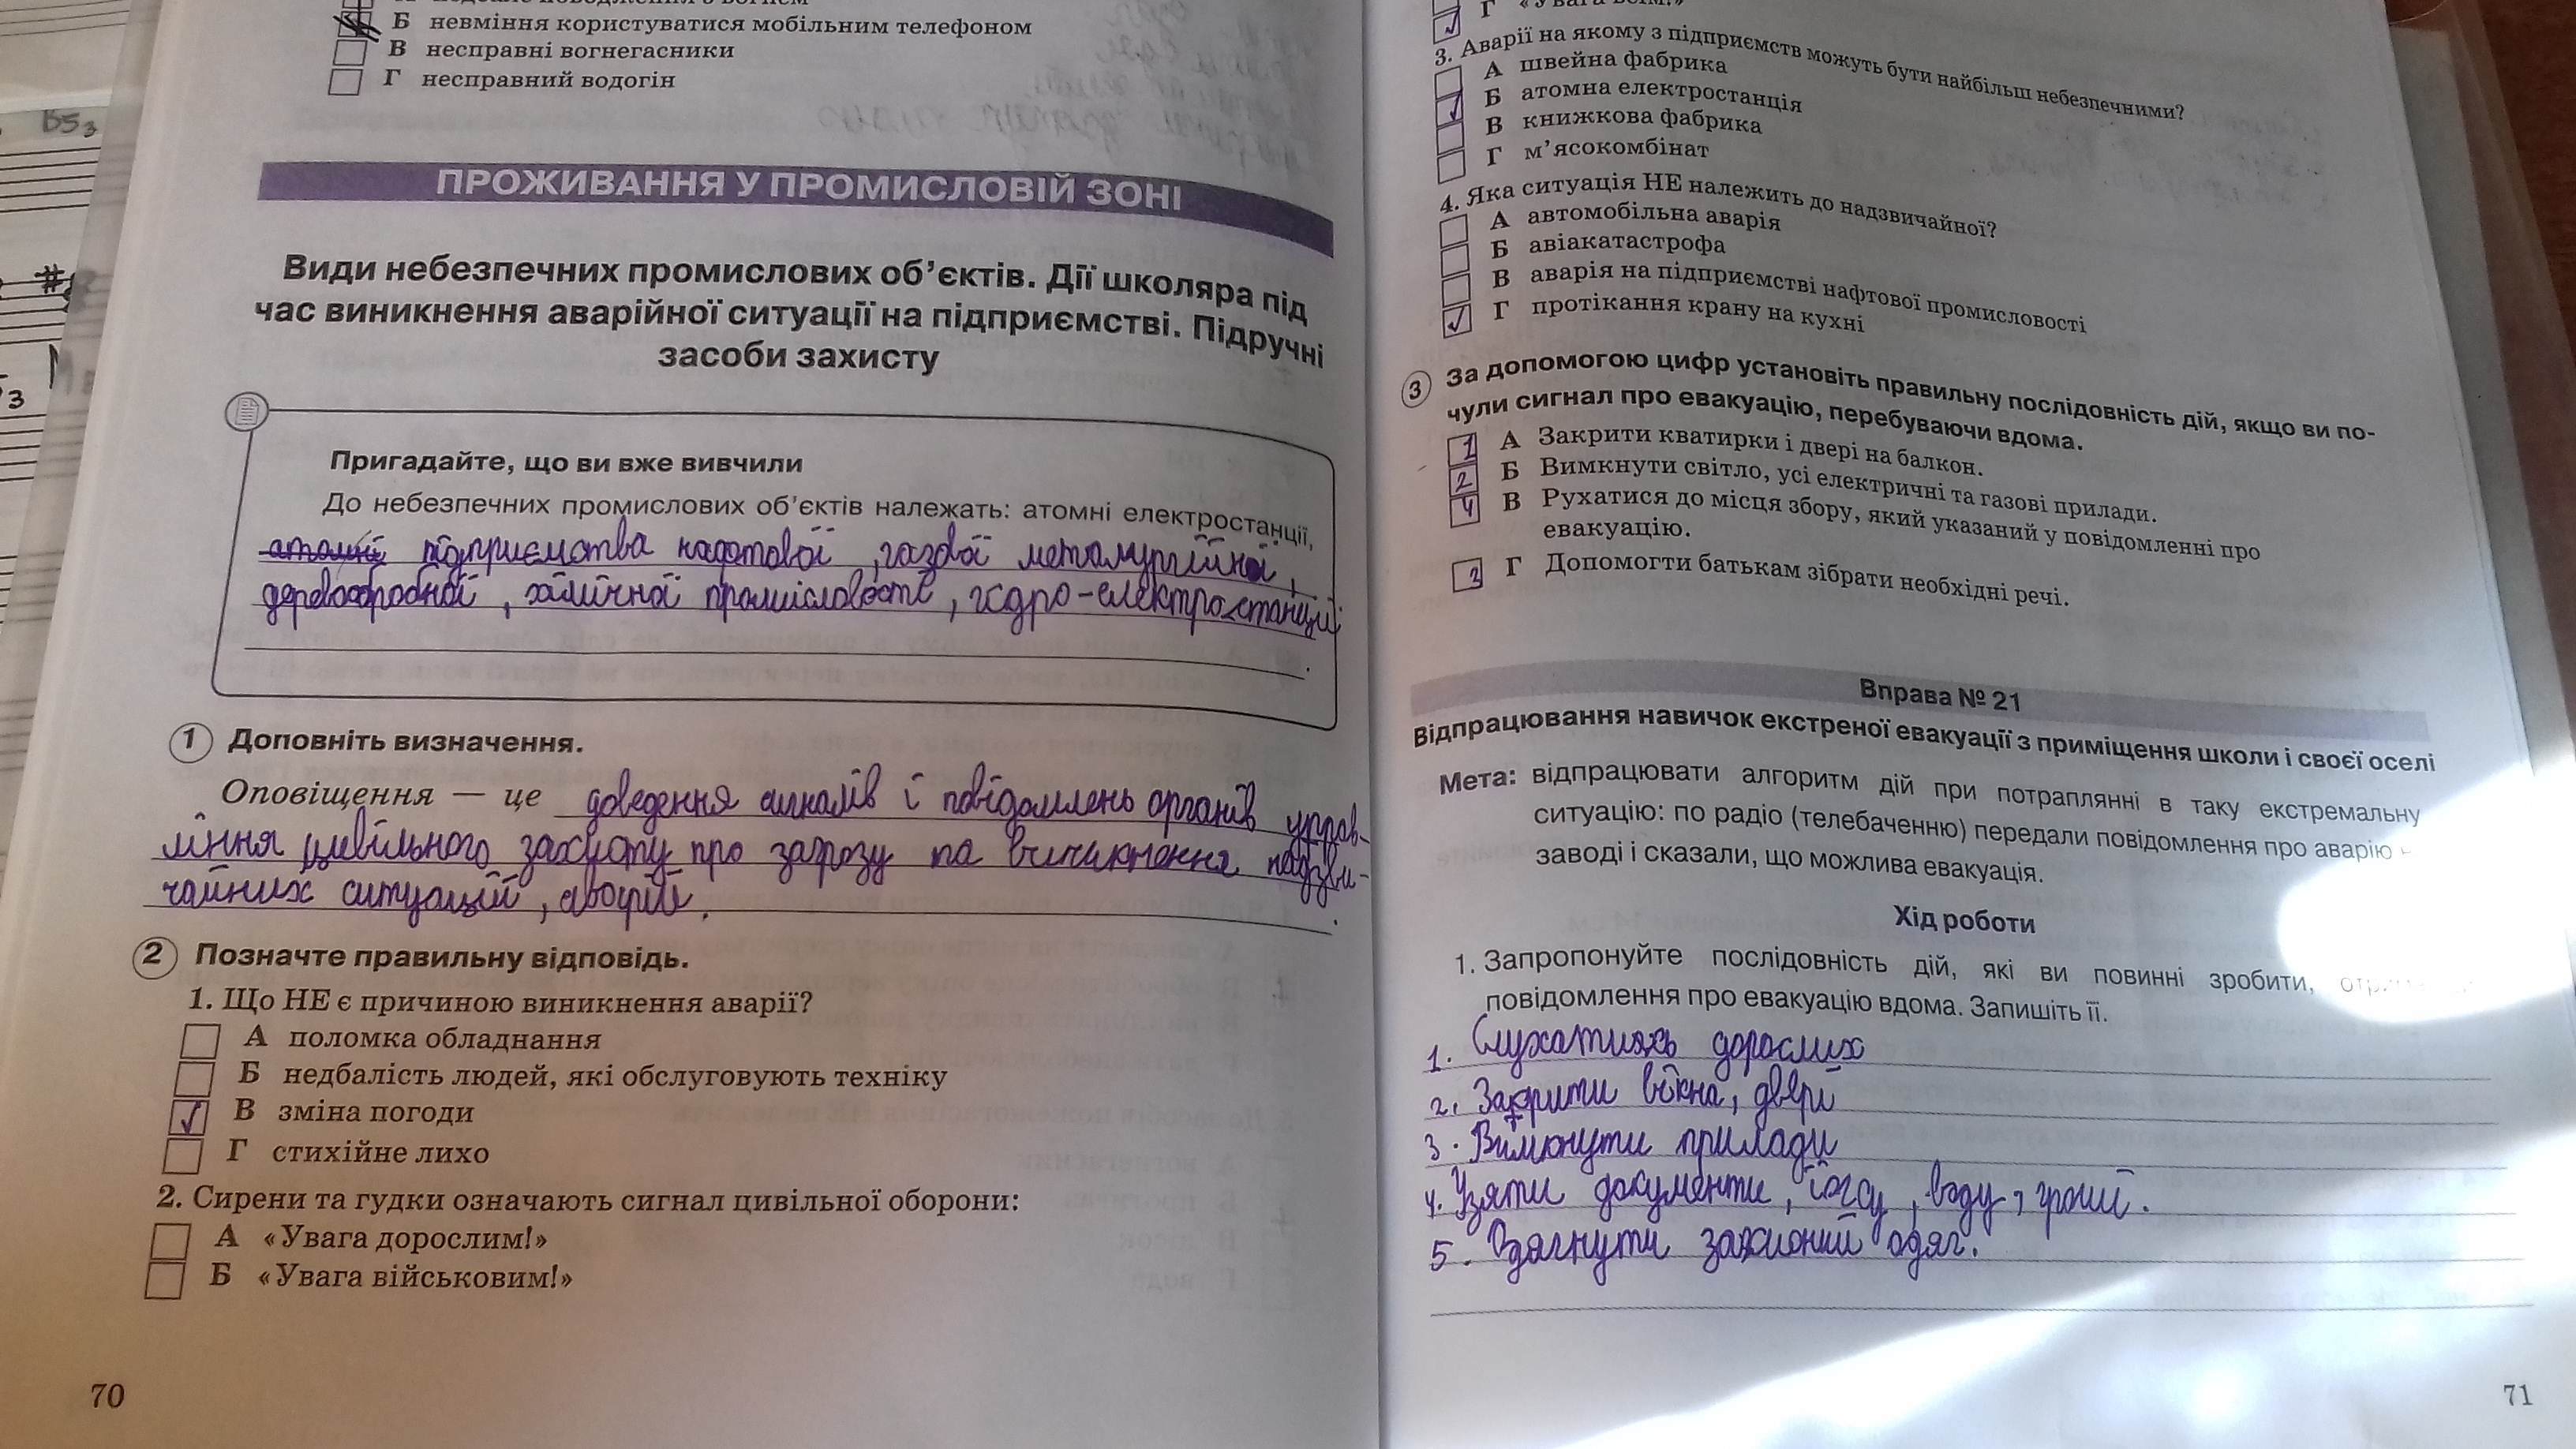 Б невміння користуватися мобільним телефоном
В несправні вогнегасники
Г несправний водогін
ПРОЖИВАННЯ У ПРОМИСЛОВІЙ ЗОНІ
Види небезпечних промислових об’єктів. Дії школяра під
час виникнення аварійної ситуації на підприємстві. Підручні
засоби захисту
Пригадайте, що ви вже вивчили
До небезпечних промислових об’єктів належать: атомні електростанції,
атомні підприємства нафтової, газової металургійної,
деревообробної, хімічної промисловості, гідро-електростанції
.
1 Доповніть визначення.
Оповіщення — це доведення сигналів і повідомлень органів управ-
ління цивільного захисту про загрозу та виникнення надзви-
чайних ситуацій, аварій.
2 Позначте правильну відповідь.
1. Що НЕ є причиною виникнення аварії?
А поломка обладнання
Б недбалість людей, які обслуговують техніку
В зміна погоди
Г стихійне лихо
2. Сирени та гудки означають сигнал цивільної оборони:
А «Увага дорослим!»
Б «Увага військовим!»
70
Г «Увага всім!»
3. Аварії на якому з підприємств можуть бути найбільш небезпечними?
А швейна фабрика
Б атомна електростанція
В книжкова фабрика
Г м’ясокомбінат
4. Яка ситуація НЕ належить до надзвичайної?
А автомобільна аварія
Б авіакатастрофа
В аварія на підприємстві нафтової промисловості
Г протікання крану на кухні
3 За допомогою цифр установіть правильну послідовність дій, якщо ви по-
чули сигнал про евакуацію, перебуваючи вдома.
1 А Закрити кватирки і двері на балкон.
2 Б Вимкнути світло, усі електричні та газові прилади.
4 В Рухатися до місця збору, який указаний у повідомленні про
евакуацію.
3 Г Допомогти батькам зібрати необхідні речі.
Вправа № 21
Відпрацювання навичок екстреної евакуації з приміщення школи і своєї оселі
Мета: відпрацювати алгоритм дій при потраплянні в таку екстремальну
ситуацію: по радіо (телебаченню) передали повідомлення про аварію
заводі і сказали, що можлива евакуація.
Хід роботи
1. Запропонуйте послідовність дій, які ви повинні зробити,
повідомлення про евакуацію вдома. Запишіть її.
1. Слухатись дорослих
2. Закрити вікна, двері
3. Вимкнути прилади
4. Узяти документи, їжу, воду, гроші.
5. Вдягнути захисний одяг.
71